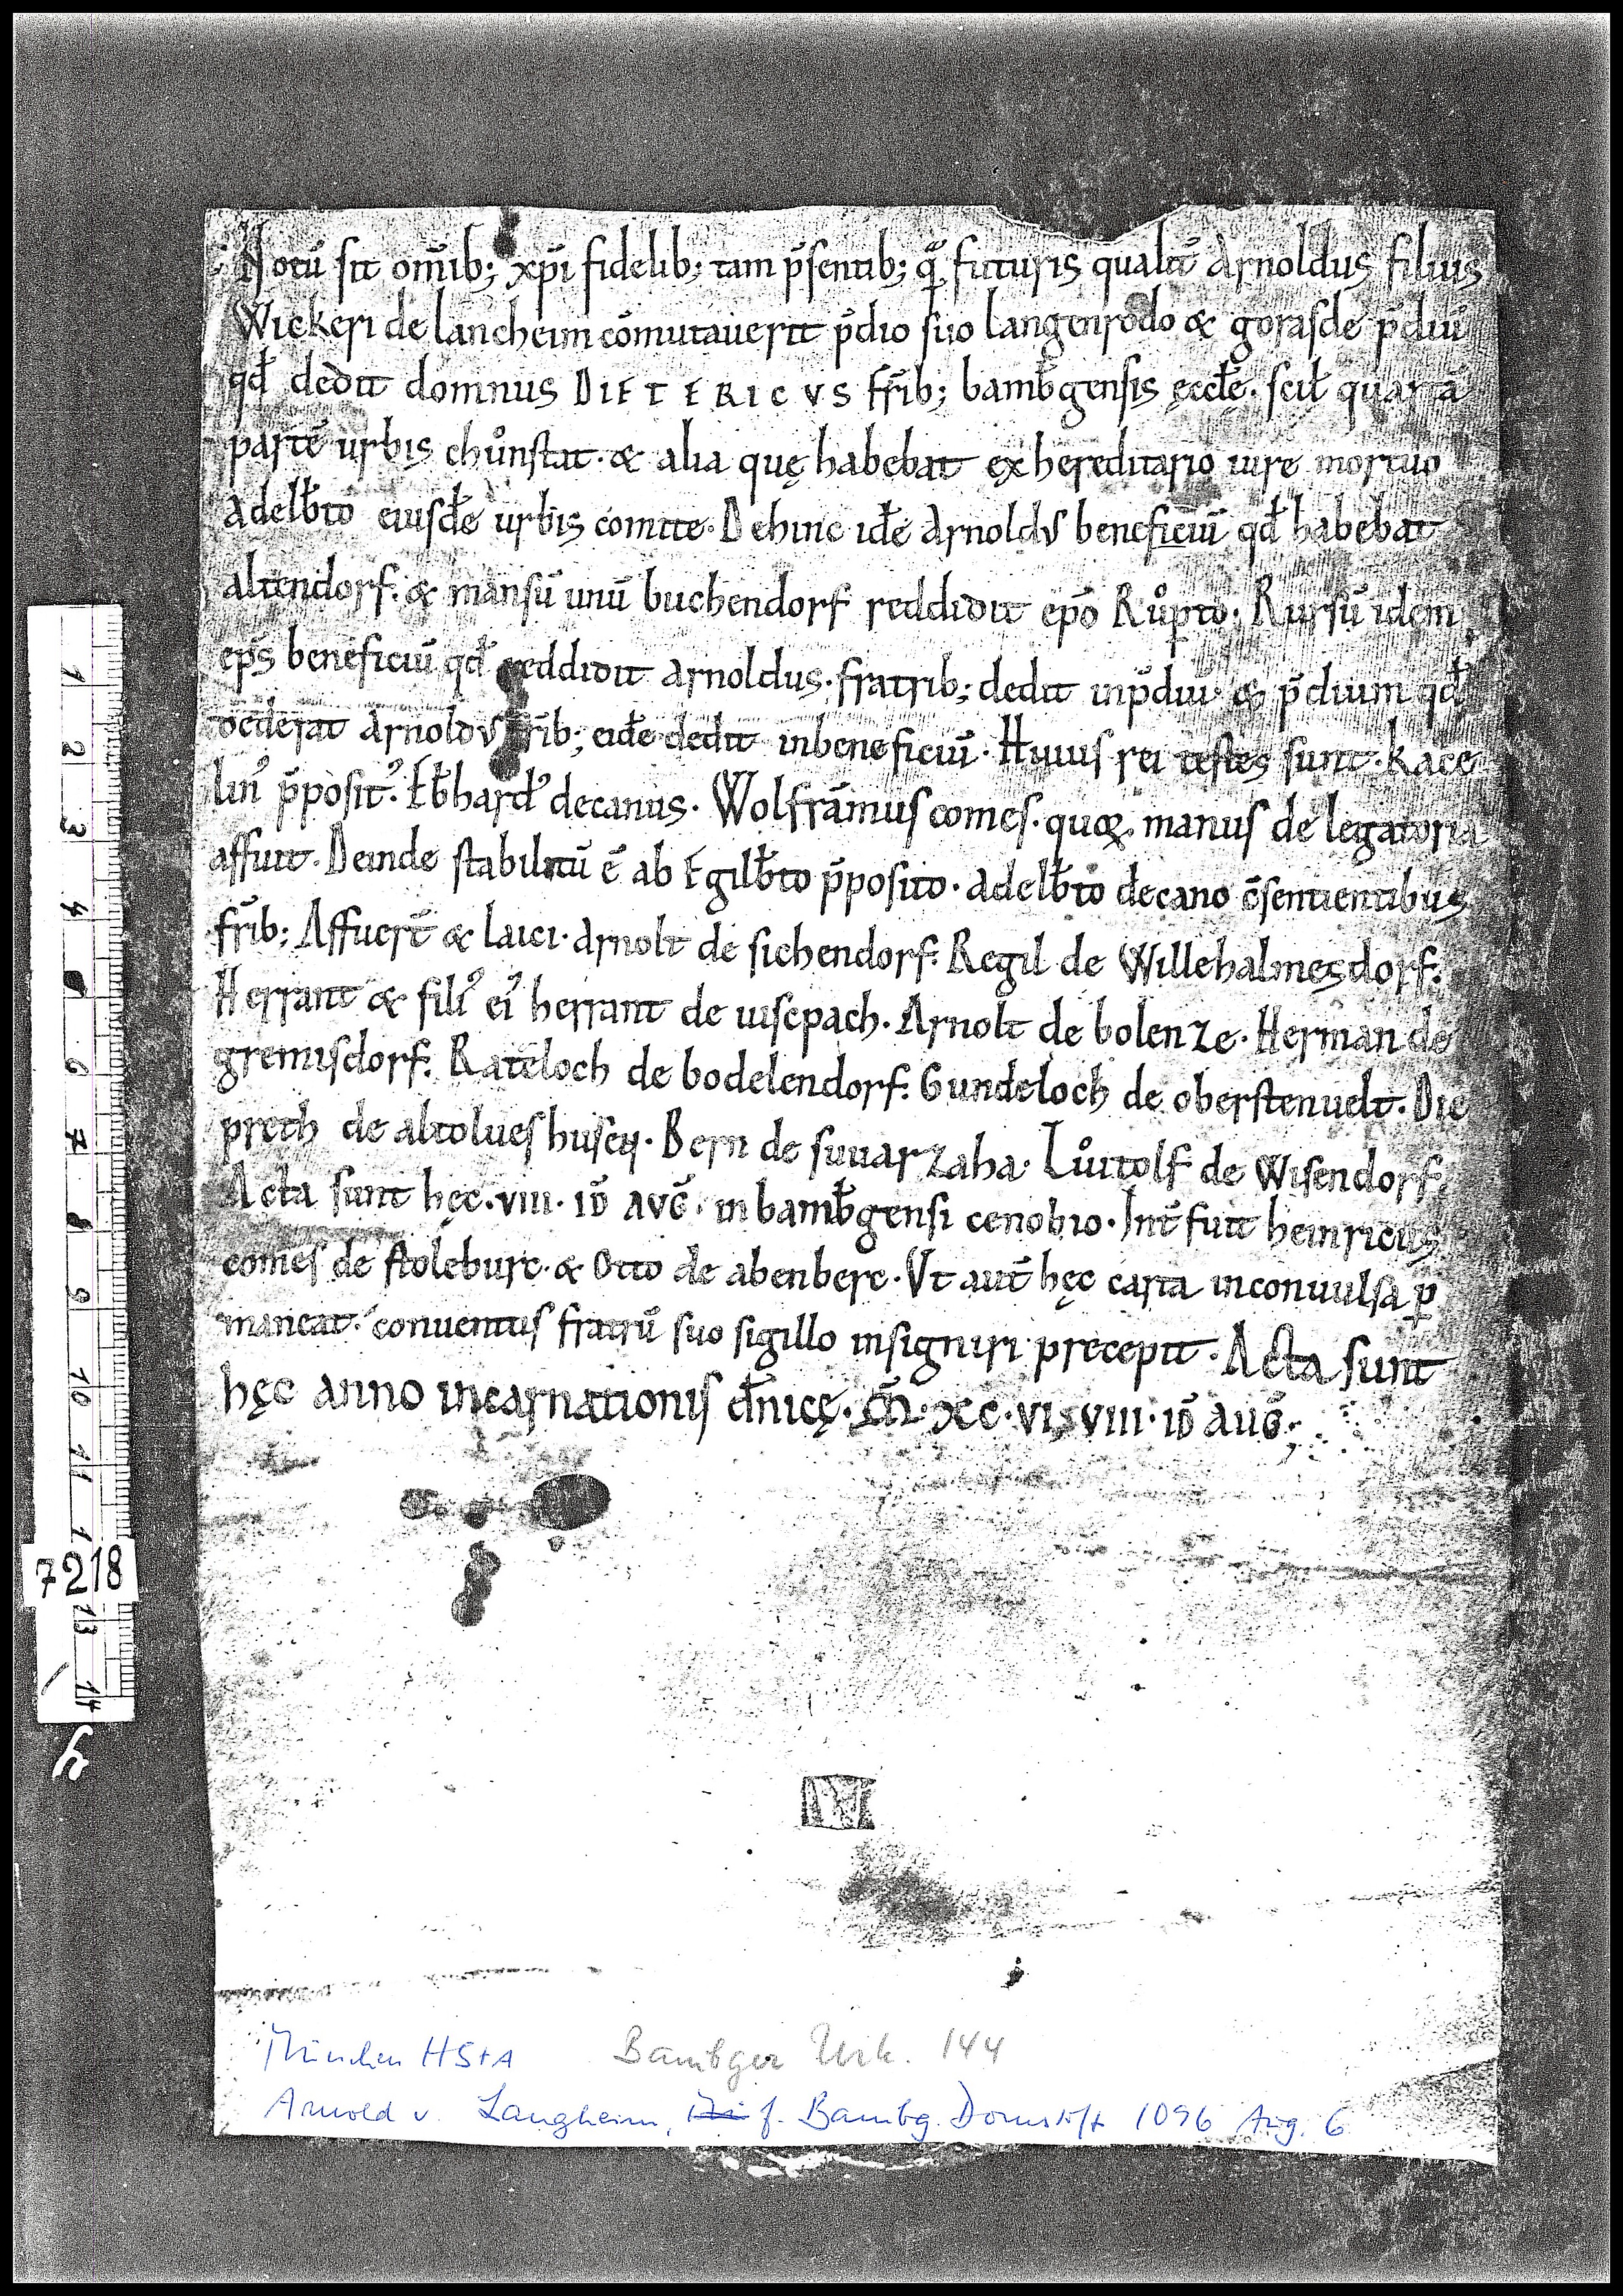 Notū sit om̄ib; xp̄i fidelib; tam p̄sentib; q̄ futuris qualit̄ Arnoldus filius
Wickeri de lancheim cōmutauerit p̄dio suo langenrodo & gorasde p̄diū
qd̄ dedit domnus DIETERICVS fr̄ib; bamb̄gensis ęccłe. scił quartā
partē urbis chůnstat. & alia quę habebat ex hereditario iure mortuo
Adelb̄to eiusdē urbis comite. Dehinc idē Arnoldus beneficiū qd̄ habebat
altendorf. & mansū unū buchendorf reddidit ep̄o Růp̄to. Rursū idem
ep̄s beneficiū qd̄ reddidit Arnoldus. fratrib; dedit inp̄diū & p̄dium qd̄
dederat Arnoldus fr̄ib; eidē dedit inbeneficiū. Huius rei testes sunt. Kace
linꝰ p̄positꝰ. Eb̄hardꝰ decanus. Wolframus comes. quoq; manus de legatoria
affuit. Deinde stabilitū ē ab Egilb̄to p̄posito. Adelb̄to decano c̄sentientibus
fr̄ib; Affuer̄t & laici. Arnolt de sichendorf. Regil de Willehalmesdorf.
Herrant & filiꝰ eiꝰ herrant de uisepach. Arnolt de bolenze. Herman de
gremisdorf. Rateloch de bodelendorf. Gundeloch de oberstenuelt. Die
preth de altolueshusen. Bern de suuarzaha. Lůtolf de Wisendorf.
Acta sunt hęc. VIII. ID̄ AVḠ. in bamb̄gensi cenobio. Int̄fuit heinricus
comes de stoleburc. & Otto de abenberc. Vt aut̄ hęc carta inconuulsa ꝑ
maneat. conuentus fratrū suo sigillo insigniri precepit. Acta sunt
hęc anno incarnationis dn̄icę. M̄. XC. VI. VIII. ID̄ AUḠ.
1
2
3
4
6
7
8
9
10
11
1
7218
13
14
München HStA Bambger Urk. 144
Arnold v. Langheim, f. Bambg. Domstift 1096 Aug. 6